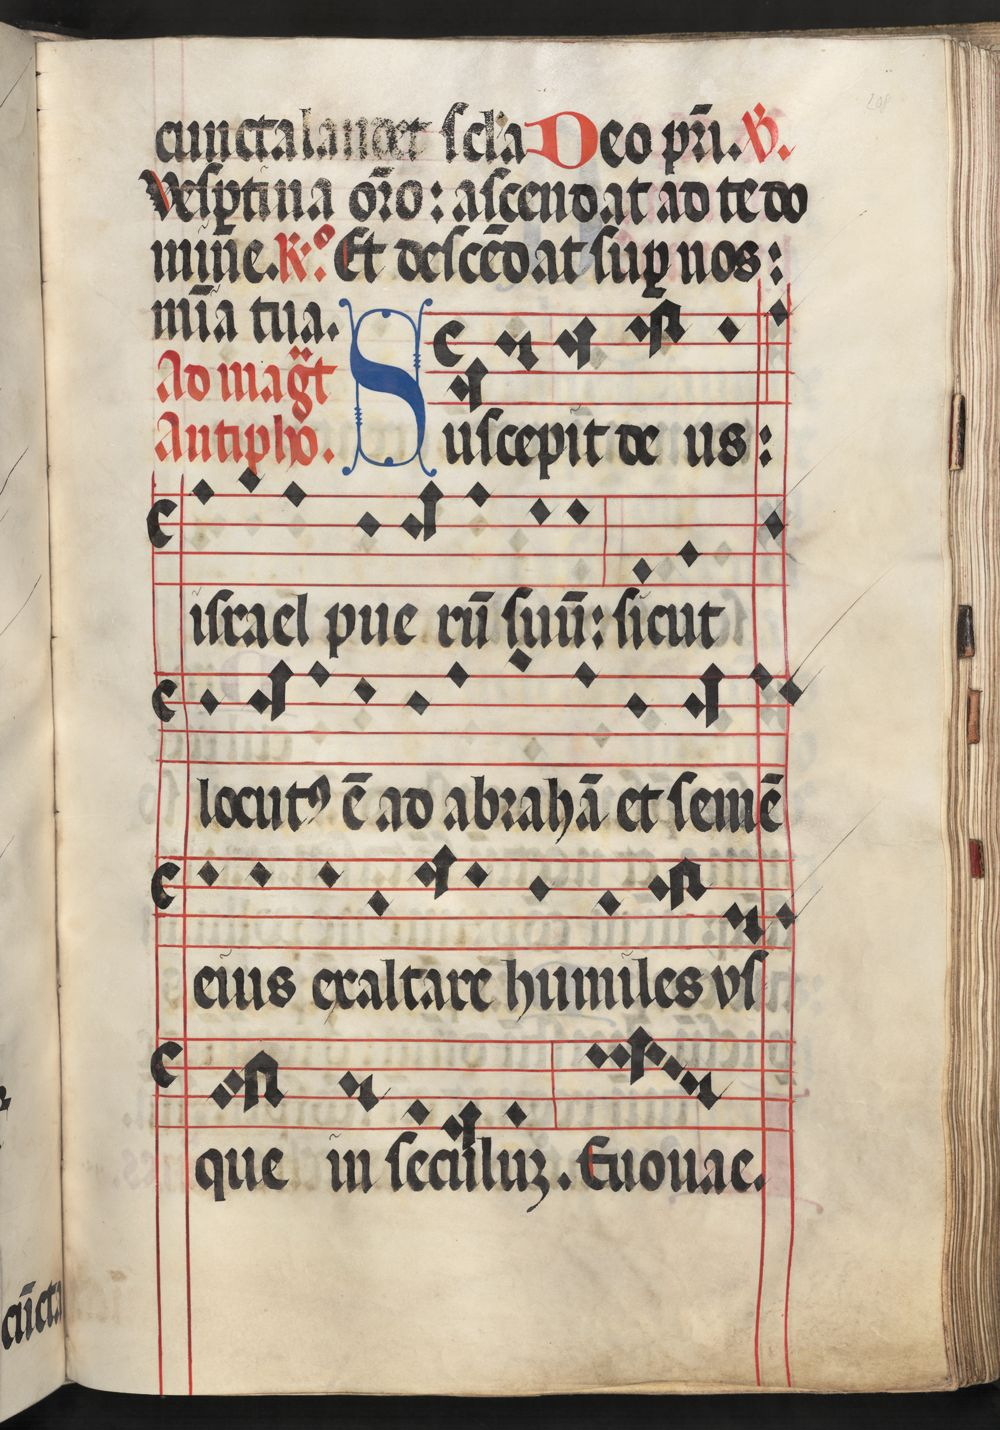 cuncta laudet scla Deo pr̄i. ℣.
Vesꝑtina or̄o: ascendat ad te do
mine. R⁄. Et descēdat suꝑ nos:
mīa tua.
Ad mag̃t
Antiph̃o.
Suscepit de us:
israel pue rū suū: sicut
locutꝰ ē ad abrahā et semē
eius exaltare humiles vs
que in seculuꝫ. Euouae.
cūcta
208